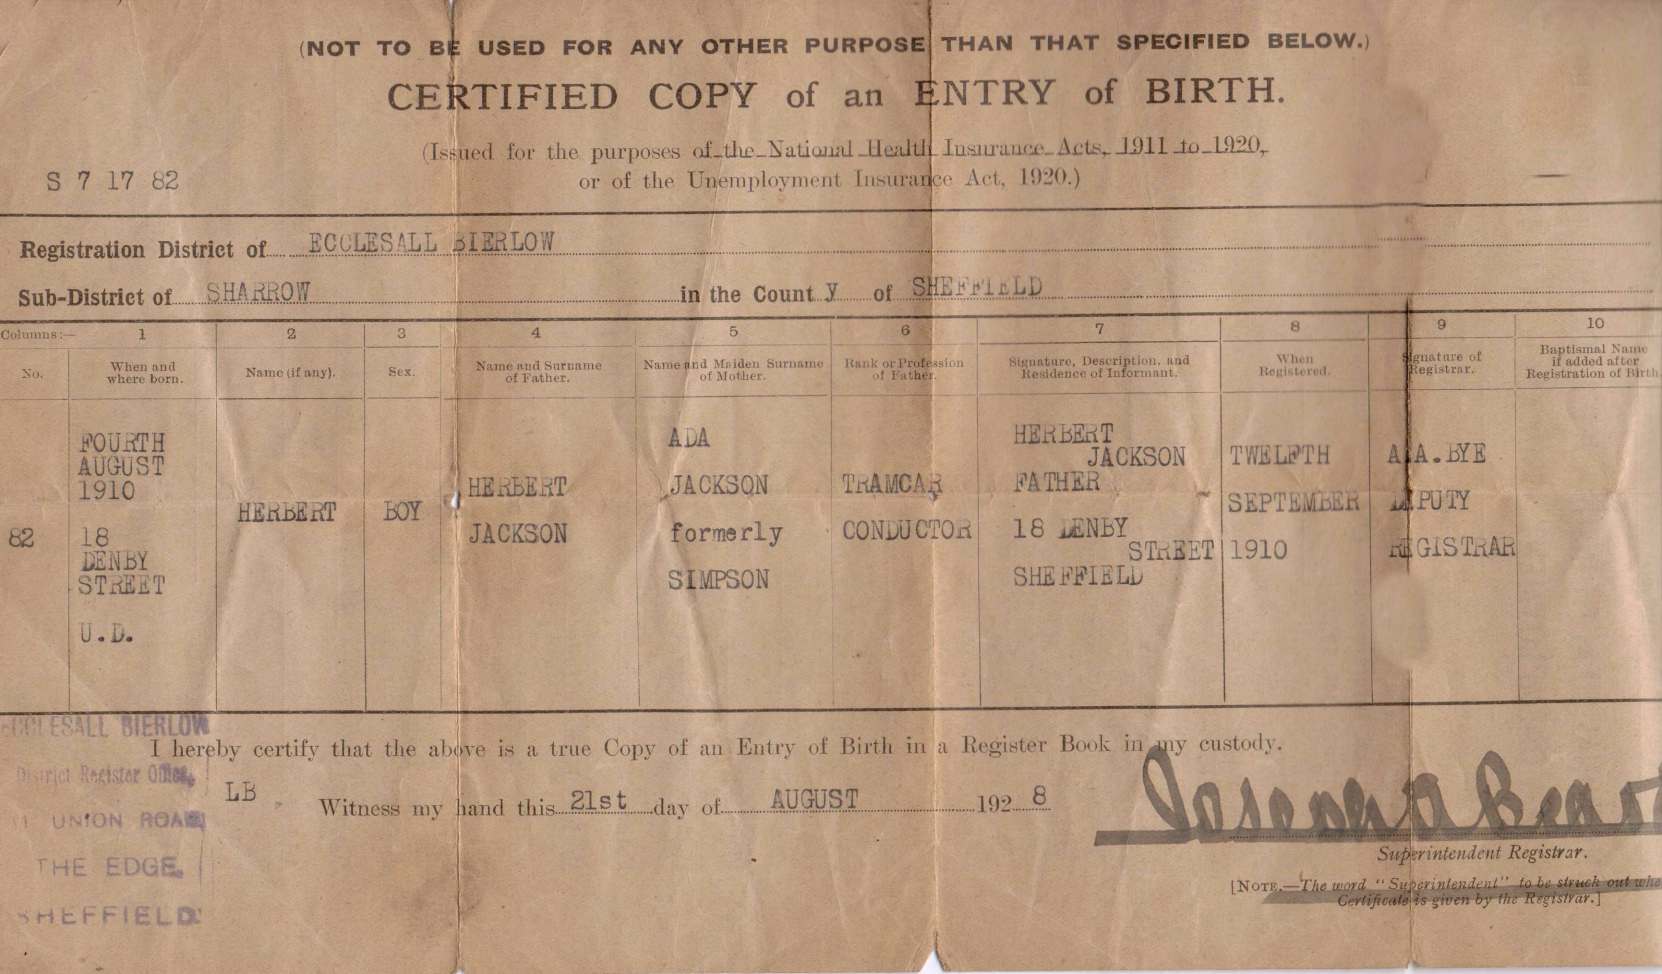 (NOT TO BE USED FOR ANY OTHER PURPOSE THAN THAT SPECIFIED BELOW.)
CERTIFIED COPY of an ENTRY of BIRTH.
(Issued for the purposes of the National Health Insurance Acts, 1911 to 1920,
or of the Unemployment Insurance Act, 1920.)
S 7 17 82
Registration District of ECCLESALL BIERLOW
Sub-District of SHARROW in the County of SHEFFIELD
Columns:— 1 2 3 4 5 6 7 8 9 10
No.
When and
where born.
Name (if any).
Sex.
Name and Surname
of Father.
Name and Maiden Surname
of Mother.
Rank or Profession
of Father.
Signature, Description, and
Residence of Informant.
When
Registered.
Signature of
Registrar.
Baptismal Name
if added after
Registration of Birth.
82
FOURTH
AUGUST
1910
18
DENBY
STREET
U.D.
HERBERT
BOY
HERBERT
JACKSON
ADA
JACKSON
formerly
SIMPSON
TRAMCAR
CONDUCTOR
HERBERT
JACKSON
FATHER
18 DENBY
STREET
SHEFFIELD
TWELFTH
SEPTEMBER
1910
A.A.BYE
DEPUTY
REGISTRAR
ECCLESALL BIERLOW
District Register Office,
UNION ROAD,
THE EDGE,
SHEFFIELD.
I hereby certify that the above is a true Copy of an Entry of Birth in a Register Book in my custody.
LB
Witness my hand this 21st day of AUGUST 1928
Joseph A
Superintendent Registrar.
[NOTE.—The word "Superintendent" to be struck out
Certificate is given by the Registrar.]